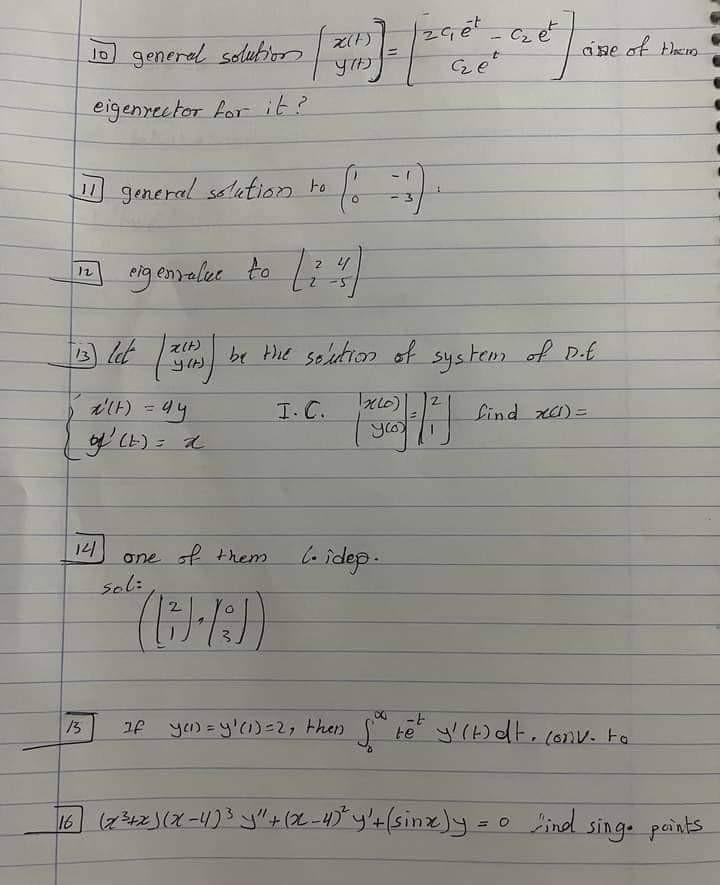 10 general solution [x(t) y(t)] = [2c₁e^-t - c₂e^t, c₂e^t] one of them
eigenvector for it?
11 general solution to (1 -1, 0 -3).
12 eigenvalue to [2 4, 2 -5]
13) let [x(t) y(t)] be the solution of system of D.E
{ x'(t) = 4y
y'(t) = x
I.C. [x(0) y(0)] = [2 1] find x(1) =
14 one of them L.idep.
sol:
([2 1], [0 3])
15 If y(1) = y'(1) = 2, then ∫₀^∞ te^-t y'(t) dt. conv. to
16 (x³+x)(x-4)³ y'' + (x-4)² y' + (sinx)y = 0 find sing. points